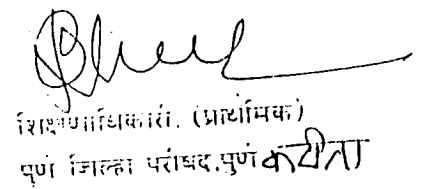 शिक्षणाधिकारी. (प्राथमिक)
पुणे जिल्हा परीषद.पुणे करीता